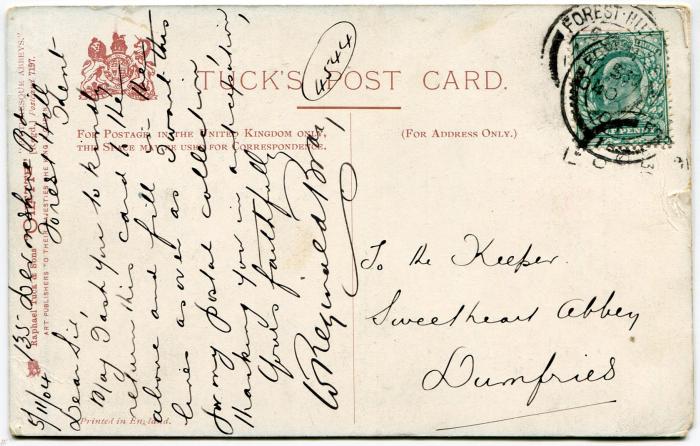 TUCK'S POST CARD.
FOR POSTAGE IN THE UNITED KINGDOM ONLY,
THIS SPACE MAY BE USED FOR CORRESPONDENCE.
(FOR ADDRESS ONLY.)
FOREST HILL
4544
5/11/04 135 Devonshire Rd
Forest Hill
Dear Sir,
May I ask you to kindly
return this card to the
above and fill in the
lines as over as I want this
for my postal collection
Thanking you in anticipation,
Yours faithfully
W Reginald Bray
To the Keeper
Sweetheart Abbey
Dumfries
Raphael Tuck & Sons
ART PUBLISHERS TO THEIR MAJESTIES THE KING
7197.
Printed in England.